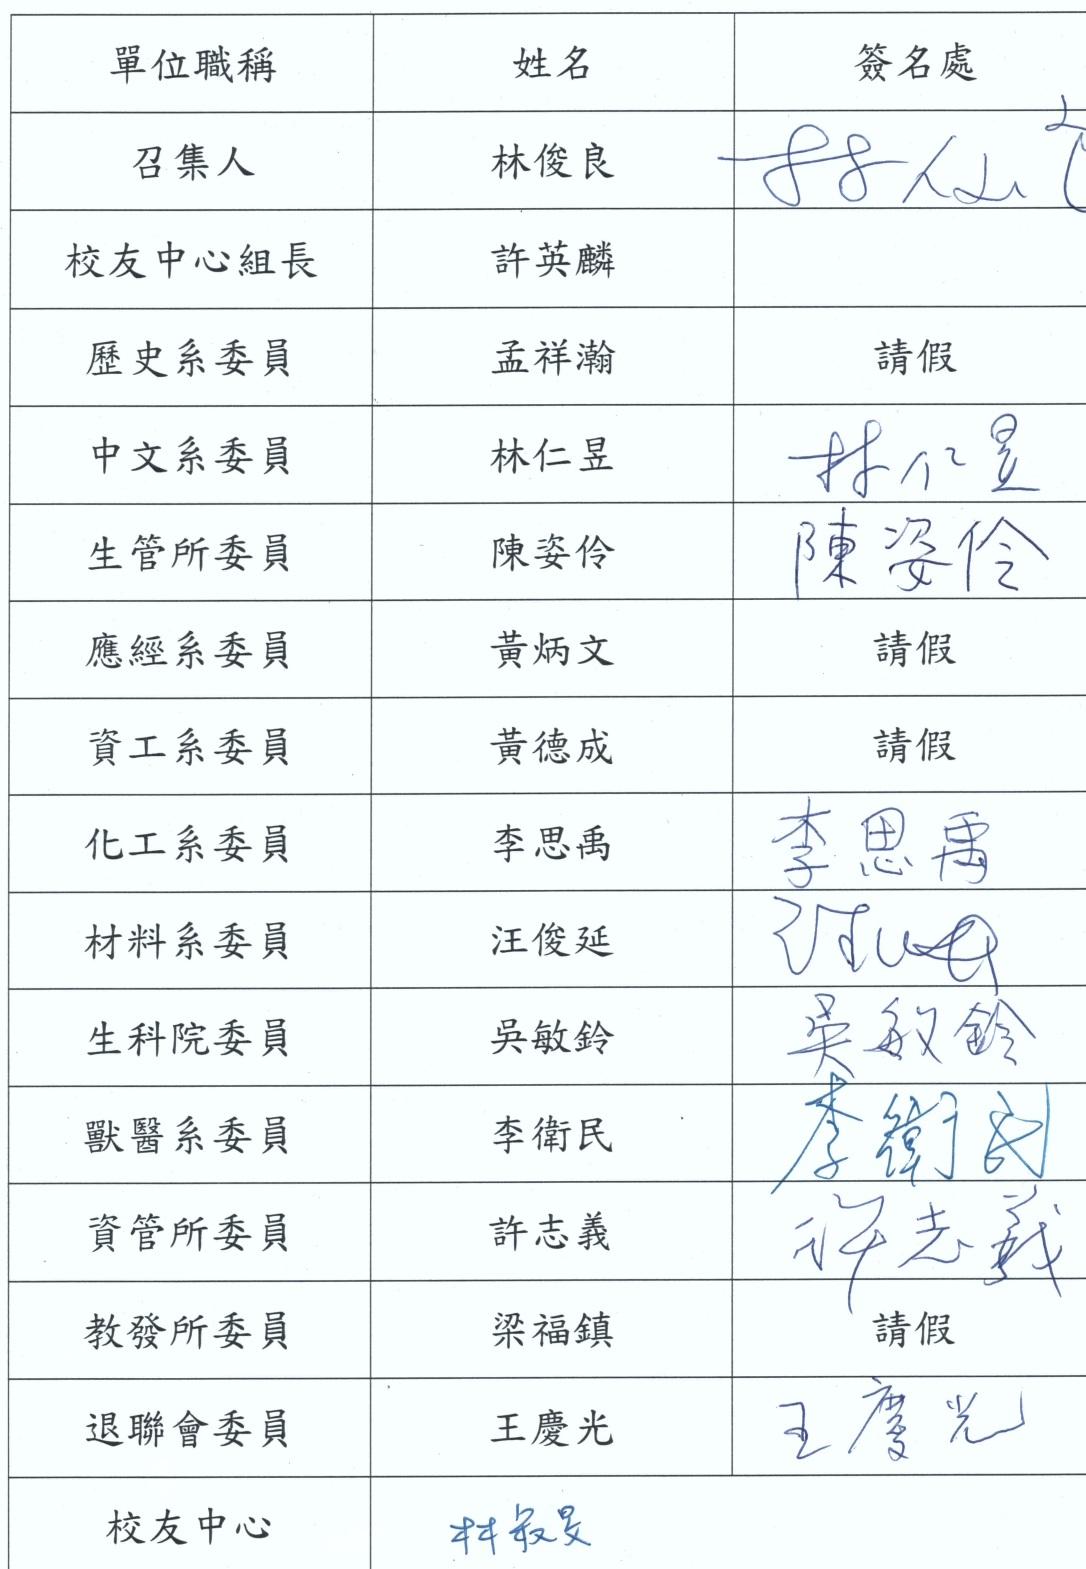 單位職稱 姓名 簽名處
召集人 林俊良 林俊良
校友中心組長 許英麟
歷史系委員 孟祥瀚 請假
中文系委員 林仁昱 林仁昱
生管所委員 陳姿伶 陳姿伶
應經系委員 黃炳文 請假
資工系委員 黃德成 請假
化工系委員 李思禹 李思禹
材料系委員 汪俊延 汪俊延
生科院委員 吳敏鈴 吳敏鈴
獸醫系委員 李衛民 李衛民
資管所委員 許志義 許志義
教發所委員 梁福鎮 請假
退聯會委員 王慶光 王慶光
校友中心 林